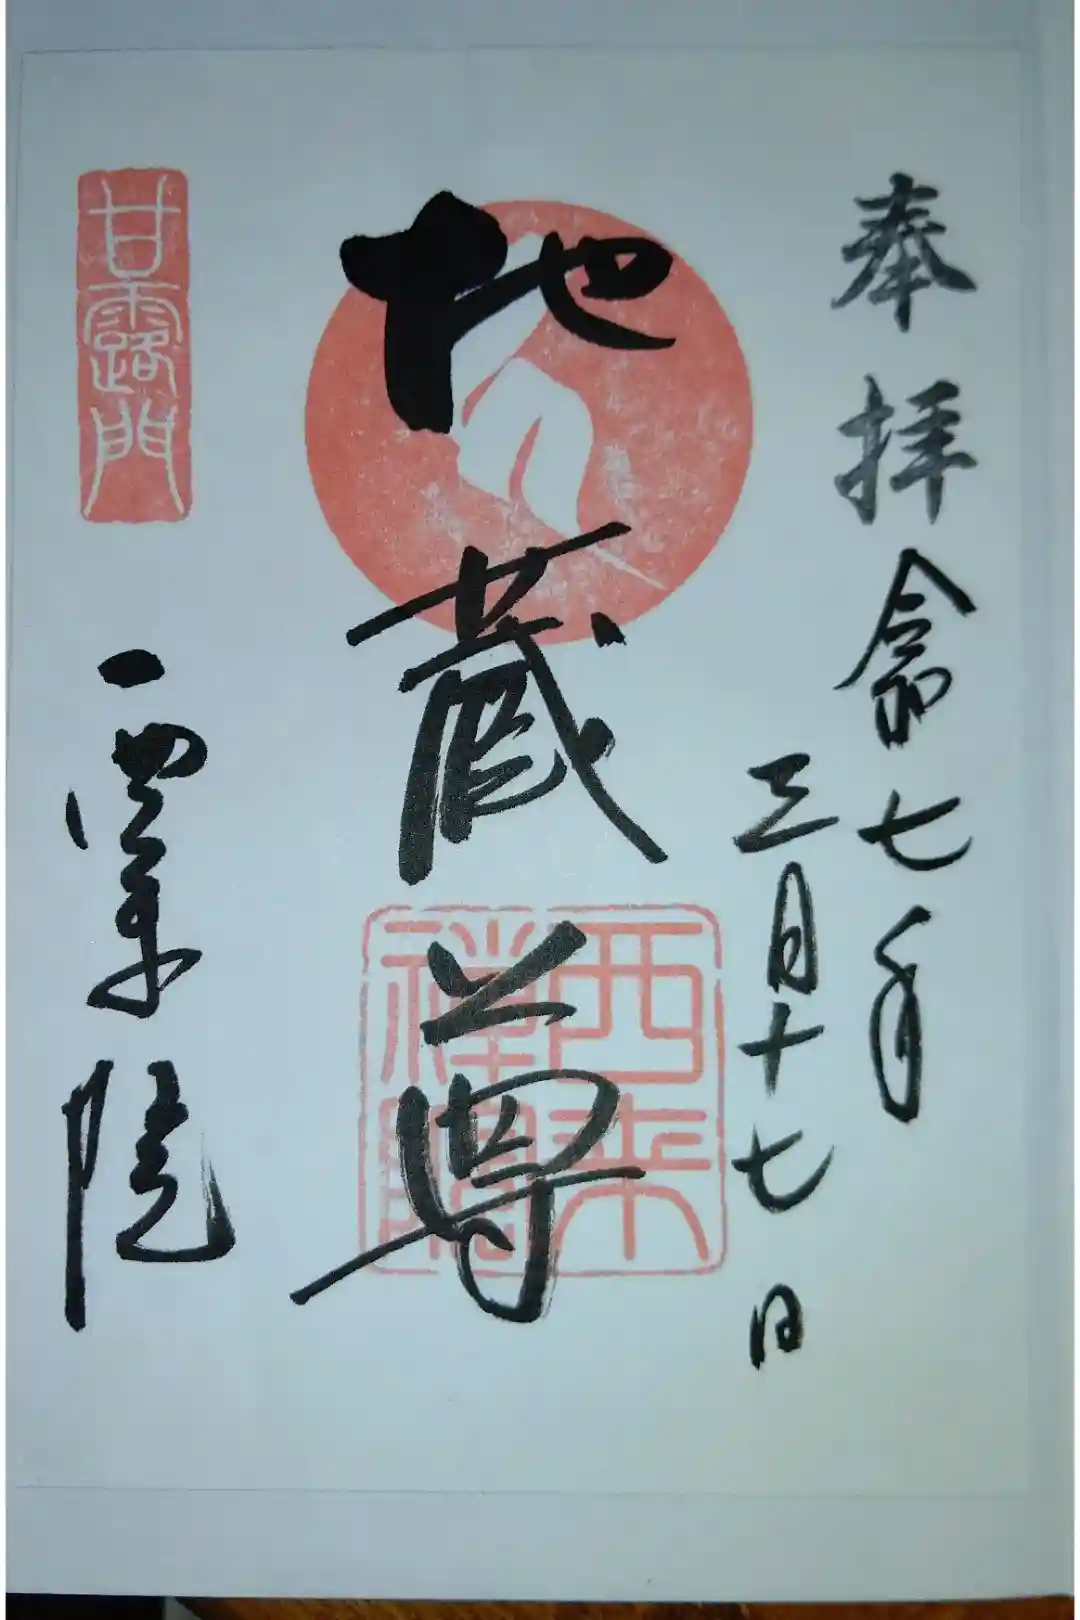 奉拝
令和七年
三月十七日
地蔵尊
西来禅
甘露門
西来院